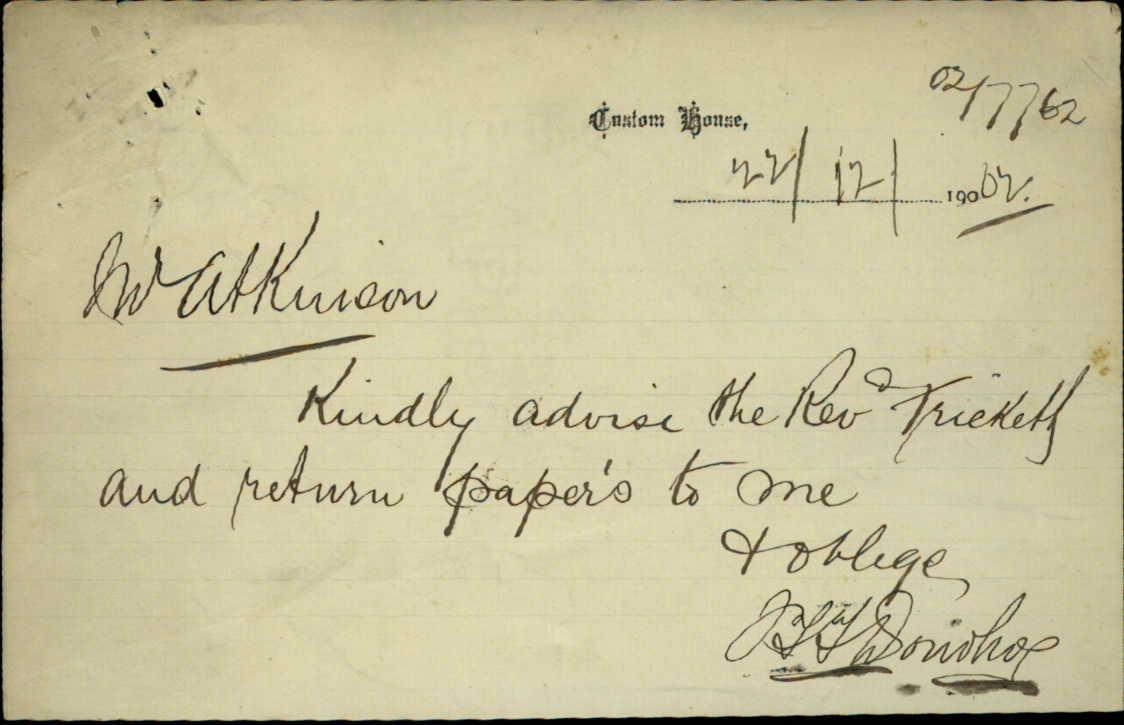 02/7762
Custom House,
22/12/1902.
Mr Atkinson
Kindly advise the Revd Trickett
and return paper's to me
& oblege
Donohoe